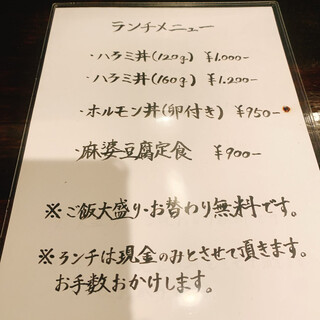 ランチメニュー
・ハラミ丼(120g) ¥1.000-
・ハラミ丼(160g) ¥1.200-
・ホルモン丼(卵付き) ¥950-
・麻婆豆腐定食 ¥900-
※ご飯大盛り・お替わり無料です。
※ランチは現金のみとさせて頂きます。
お手数おかけします。